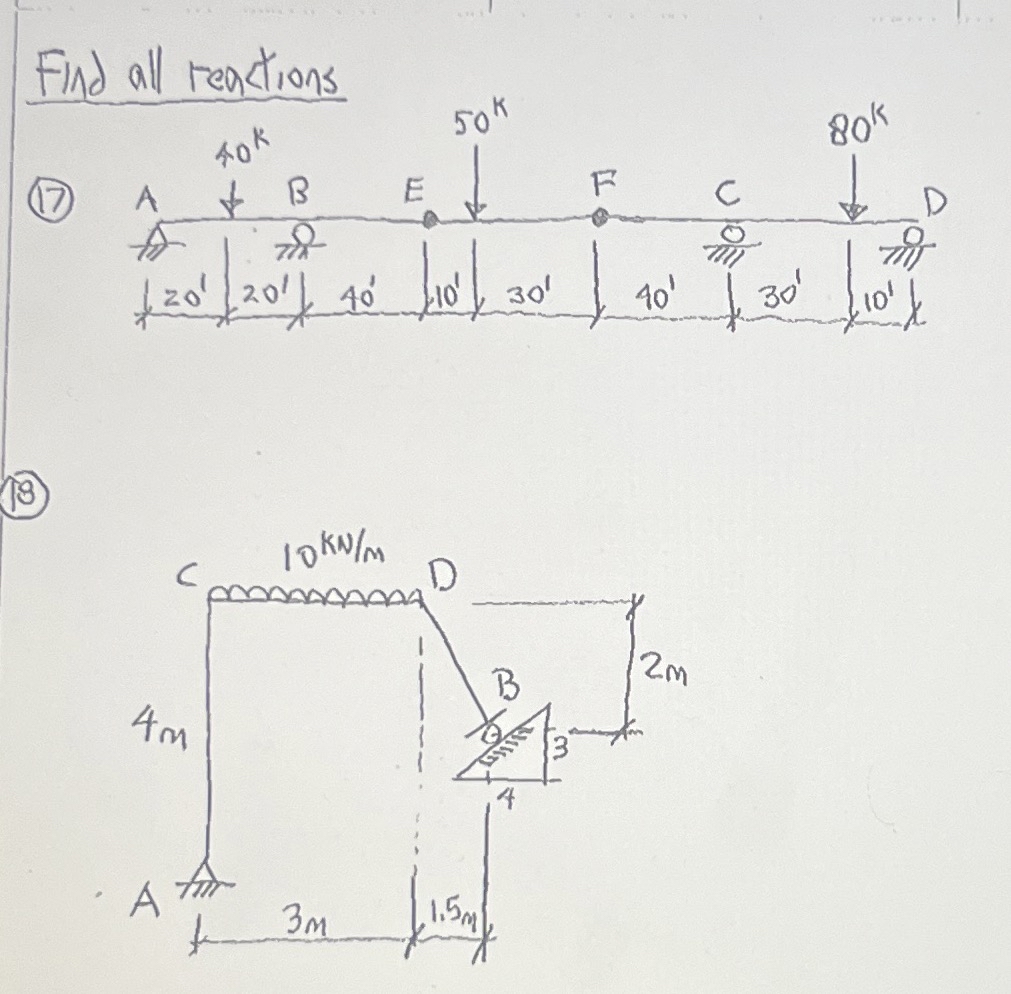 Find all reactions
50K
80K
40K
17 A B E F C D
20' 20' 40' 10' 30' 40' 30' 10'
18
10 KN/m
C D
2m
B
4m
3
4
A
3m 1.5m